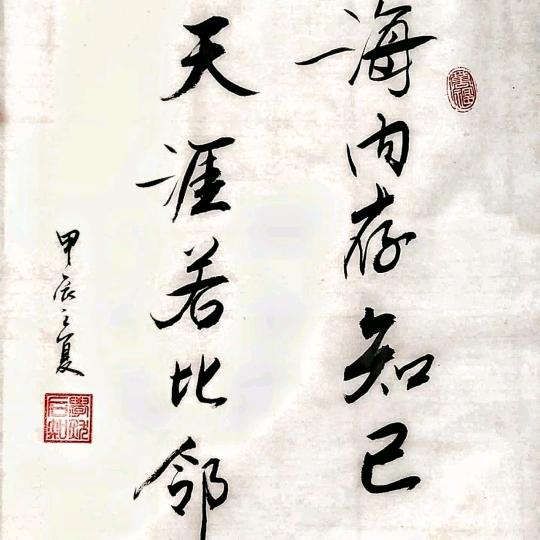 海内存知己
天涯若比邻
甲辰之夏